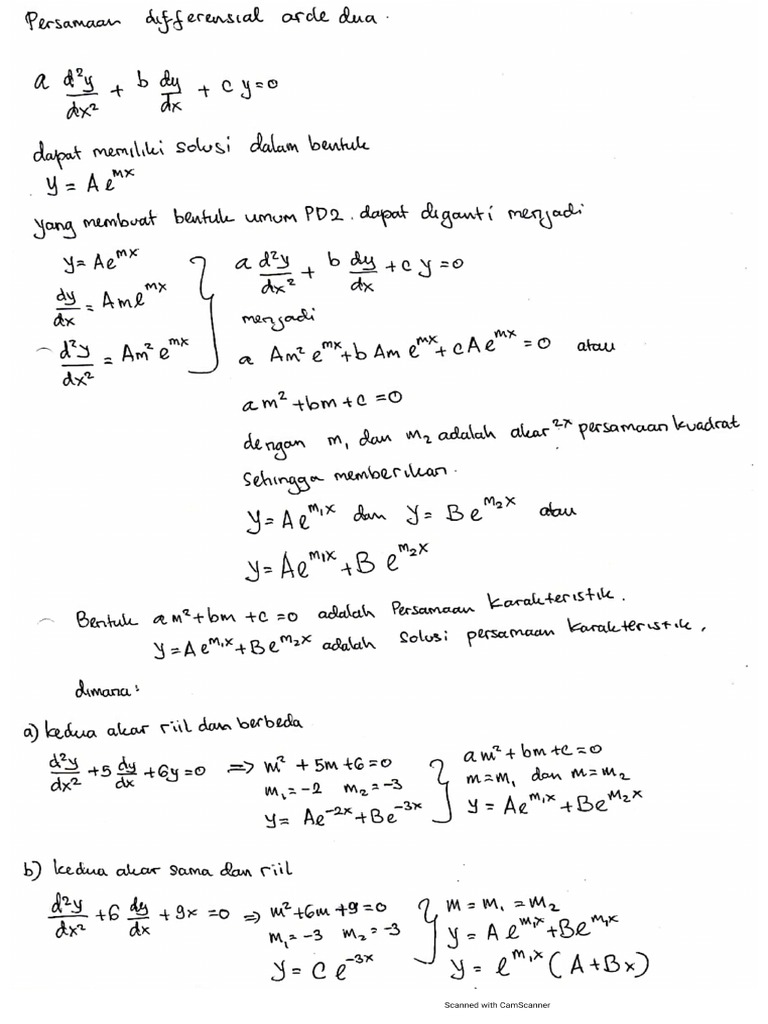 Persamaan differensial orde dua.
a d²y/dx² + b dy/dx + c y = 0
dapat memiliki solusi dalam bentuk
y = A e^mx
yang membuat bentuk umum PD2. dapat diganti menjadi
y = Ae^mx
dy/dx = Ame^mx
d²y/dx² = Am² e^mx
a d²y/dx² + b dy/dx + c y = 0
menjadi
a Am² e^mx + b Am e^mx + c A e^mx = 0 atau
am² + bm + c = 0
dengan m₁ dan m₂ adalah akar 2x persamaan kuadrat
sehingga memberikan.
y = A e^m₁x dan y = B e^m₂x atau
y = A e^m₁x + B e^m₂x
Bentuk am² + bm + c = 0 adalah Persamaan karakteristik.
y = A e^m₁x + B e^m₂x adalah solusi persamaan karakteristik,
dimana:
a) kedua akar riil dan berbeda
d²y/dx² + 5 dy/dx + 6y = 0 ⇒ m² + 5m + 6 = 0
m₁ = -2 m₂ = -3
y = Ae^-2x + Be^-3x
am² + bm + c = 0
m = m₁ dan m = m₂
y = Ae^m₁x + Be^m₂x
b) kedua akar sama dan riil
d²y/dx² + 6 dy/dx + 9x = 0 ⇒ m² + 6m + 9 = 0
m₁ = -3 m₂ = -3
y = C e^-3x
m = m₁ = m₂
y = A e^m₁x + Be^m₁x
y = e^m₁x (A + Bx)
Scanned with CamScanner